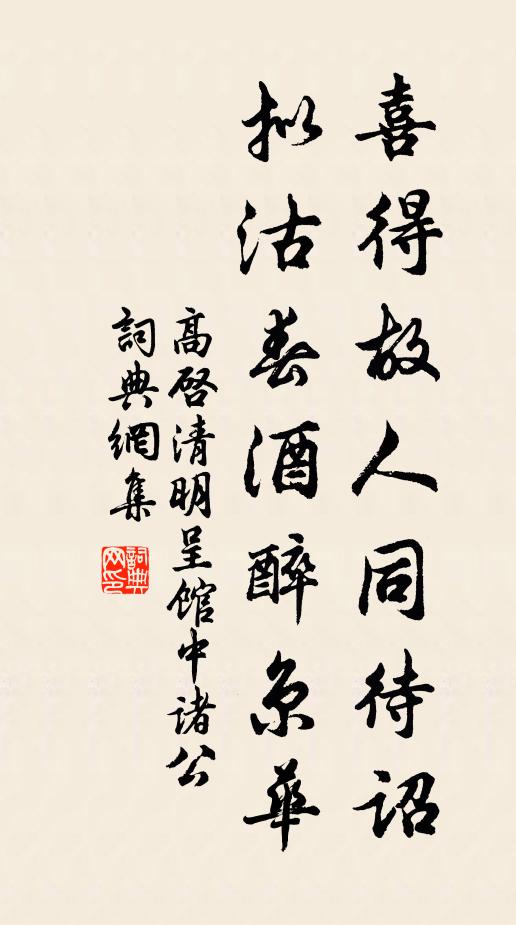 喜得故人同待詔
拟沽春酒醉京華
高啓清明呈館中諸公
詞典網集
詞典网印